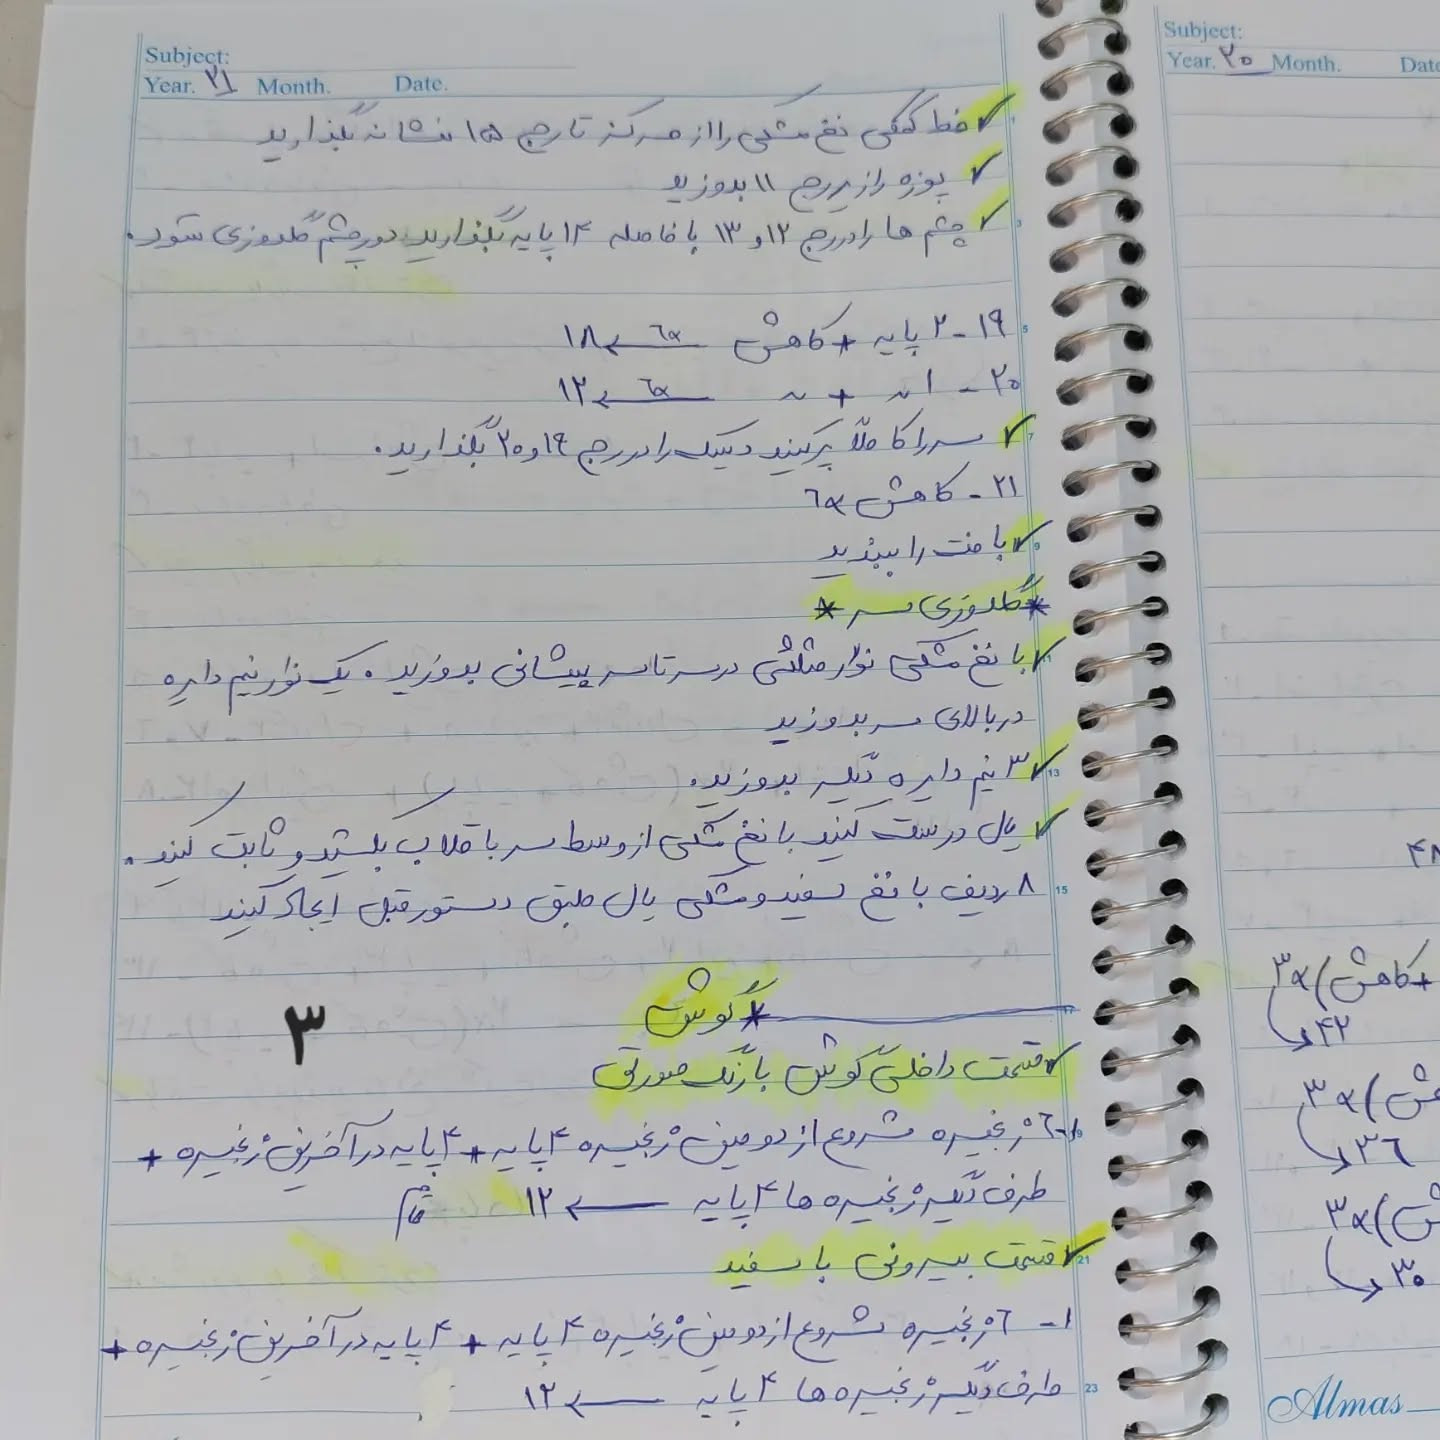 Subject:
Year. ۲۱ Month. Date.
✓ خط کمکی نخ مشکی را از مرکز تا رج ۱۵ نشانه بگذارید
✓ پوزه را زیر رج ۱۱ بدوزید
✓ چشم ها را در رج ۱۲ و ۱۳ با فاصله ۱۴ پایه بگذارید دور چشم گلدوزی شود.
۱۹ - ۲ پایه + کاهش ×۶ ← ۱۸
۲۰ - ۱ 〃 + 〃 ×۶ ← ۱۲
✓ سر را کاملاً پر کنید دیسک را در رج ۱۹ و ۲۰ بگذارید.
۲۱ - کاهش ×۶
✓ بافت را ببندید
* گلدوزی سر *
✓ با نخ مشکی نوار مثلثی در سرتاسر پیشانی بدوزید. یک نوار نیم دایره
در بالای سر بدوزید
✓ ۳ نیم دایره دیگه بدوزید.
✓ یال درست کنید با نخ مشکی از وسط سر با قلاب بکشید و ثابت کنید.
۸ ردیف با نخ سفید و مشکی یال طبق دستور قبل ایجاد کنید
* گوش
۳
✓ قسمت داخلی گوش با رنگ صورتی
۱- ۶ زنجیره شروع از دومین زنجیره ۴ پایه + ۴ پایه در آخرین زنجیره +
طرف دیگر زنجیره ها ۴ پایه ← ۱۲
✓ قسمت بیرونی با سفید
۱- ۶ زنجیره شروع از دومین زنجیره ۴ پایه + ۴ پایه در آخرین زنجیره +
طرف دیگر زنجیره ها ۴ پایه ← ۱۲
Subject:
Year. ۲۰ Month. Date
۴۸
+ کاهش) ×۳
۴۲
×۳
۳۶
×۳
۳۰
Almas